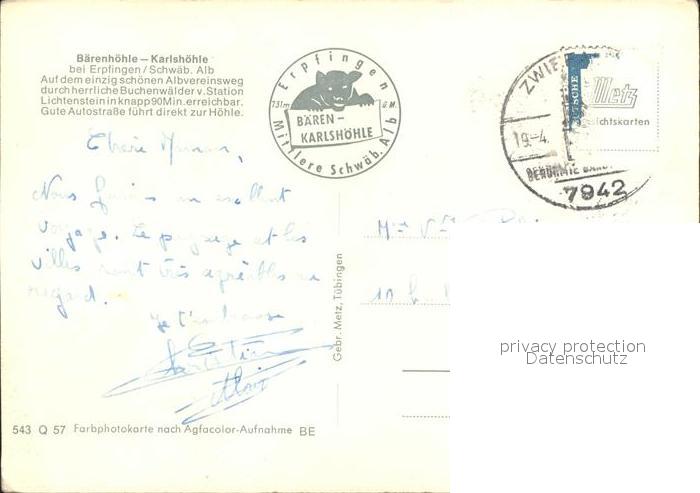 Bärenhöhle – Karlshöhle
bei Erpfingen / Schwäb. Alb
Auf dem einzig schönen Albvereinsweg
durch herrliche Buchenwälder v. Station
Lichtenstein in knapp 90 Min. erreichbar.
Gute Autostraße führt direkt zur Höhle.
Erpfingen
731m ü.M.
BÄREN-
KARLSHÖHLE
Mittlere Schwäb. Alb
ZWIE
19.-4.
BERÜHMTE BAR
7942
Metz
chtskarten
Chère Maman,
Nous faisons un excellent
voyage. Le paysage et les
villes sont très agréables au
regard.
Je t'embrasse
Alain
10
Gebr. Metz, Tübingen
privacy protection
Datenschutz
543 Q 57 Farbphotokarte nach Agfacolor-Aufnahme BE